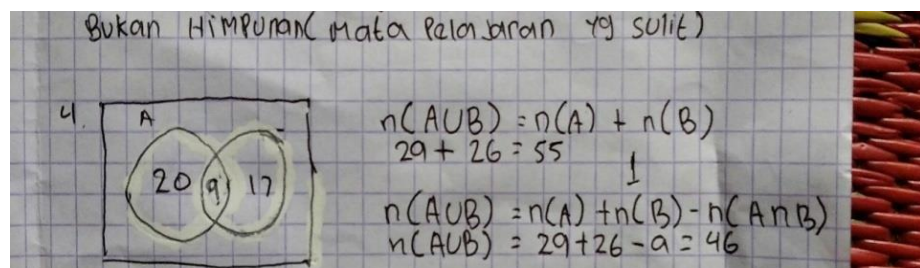 Bukan HiMPUnan( Mata Pelajaran yg sulit)
4.
A
20 9 17
n(AUB) = n(A) + n(B)
29 + 26 = 55
1
n(AUB) = n(A) + n(B) - n(AnB)
n(AUB) = 29+26-9 = 46